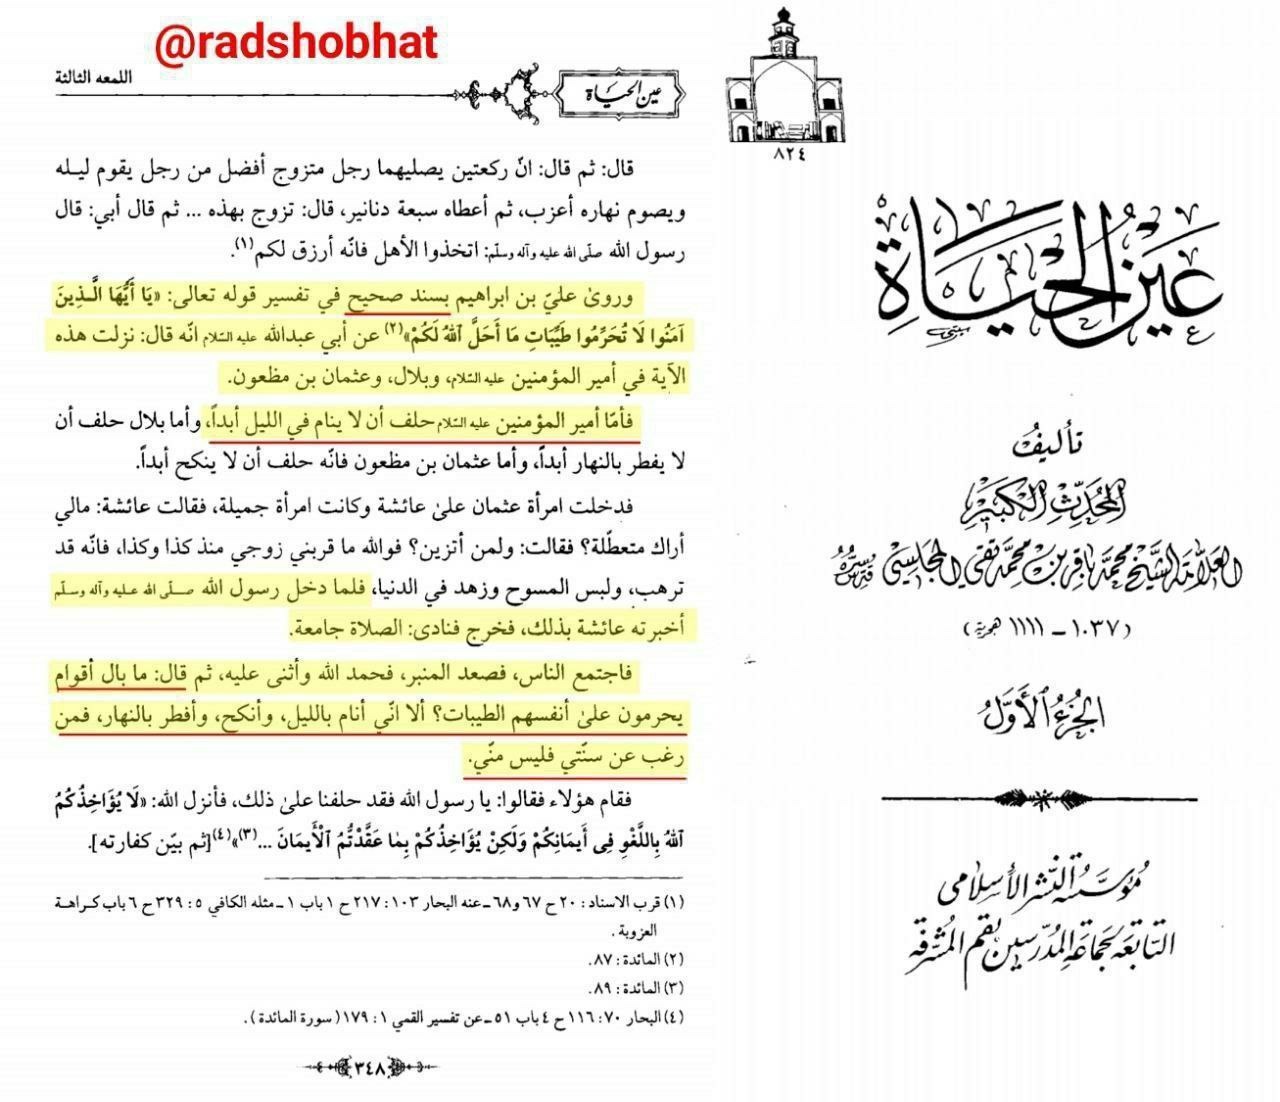 @radshobhat
اللمعه الثالثة
عين الحياة
قال: ثم قال: انّ ركعتين يصليهما رجل متزوج أفضل من رجل يقوم ليله
ويصوم نهاره أعزب، ثم أعطاه سبعة دنانير، قال: تزوج بهذه ... ثم قال أبي: قال
رسول الله صلّى الله عليه وآله وسلّم: اتخذوا الأهل فانّه أرزق لكم(١).
وروىٰ عليّ بن ابراهيم بسند صحيح في تفسير قوله تعالى: «يَا أَيُّهَا الَّـذِينَ
آمَنُوا لَا تُحَرِّمُوا طَيِّبَاتِ مَا أَحَلَّ ٱللهُ لَكُمْ»(٢) عن أبي عبدالله عليه السّلام انّه قال: نزلت هذه
الآية في أمير المؤمنين عليه السّلام، وبلال، وعثمان بن مظعون.
فأمّا أمير المؤمنين عليه السّلام حلف أن لا ينام في الليل أبداً، وأما بلال حلف أن
لا يفطر بالنهار أبداً، وأما عثمان بن مظعون فانّه حلف أن لا ينكح أبداً.
فدخلت امرأة عثمان علىٰ عائشة وكانت امرأة جميلة، فقالت عائشة: مالي
أراك متعطّلة؟ فقالت: ولمن أتزين؟ فوالله ما قربني زوجي منذ كذا وكذا، فانّه قد
ترهب، ولبس المسوح وزهد في الدنيا، فلما دخل رسول الله صـلّى الله عـليه وآله وسـلّم
أخبرته عائشة بذلك، فخرج فنادى: الصلاة جامعة.
فاجتمع الناس، فصعد المنبر، فحمد الله وأثنى عليه، ثم قال: ما بال أقوام
يحرمون علىٰ أنفسهم الطيبات؟ ألا انّي أنام بالليل، وأنكح، وأفطر بالنهار، فمن
رغب عن سنّتي فليس منّي.
فقام هؤلاء فقالوا: يا رسول الله فقد حلفنا علىٰ ذلك، فأنزل الله: «لَا يُؤَاخِذُكُمُ
ٱللهُ بِاللَّغْوِ فِى أَيمَانِكُمْ وَلَكِنْ يُؤَاخِذُكُمْ بِمَا عَقَّدْتُّمُ الْأَيمَانَ ...(٣)»(٤)[ثم بيّن كفارته].
(١) قرب الاسناد: ٢٠ ح ٦٧ و٦٨ ـ عنه البحار ١٠٣: ٢١٧ ح ١ باب ١ ـ مثله الكافي ٥: ٣٢٩ ح ٦ باب كـراهـة
العزوبة.
(٢) المائدة: ٨٧.
(٣) المائدة: ٨٩.
(٤) البحار ٧٠: ١١٦ ح ٤ باب ٥١ ـ عن تفسير القمي ١: ١٧٩ (سورة المائدة).
٣٤٨
٨٢٤
عَيْنُ الْحَيَاةِ
تأليفُ
المُحَدِّثِ الكَبيرِ
العَلّامَةِ الشَّيْخِ مُحَمَّد باقِر بْن مُحَمَّد تَقي المَجْلِسِي قُدِّسَ سِرُّهُ
(١٠٣٧ ـ ١١١١ هجرية)
الجُزءُ الأَوَّلُ
مُؤَسَّسَةُ النَّشْرِ الإِسْلَامِي
التَّابِعَةُ لِجَمَاعَةِ المُدَرِّسِينَ بِقُمِ المُشَرَّفَةِ